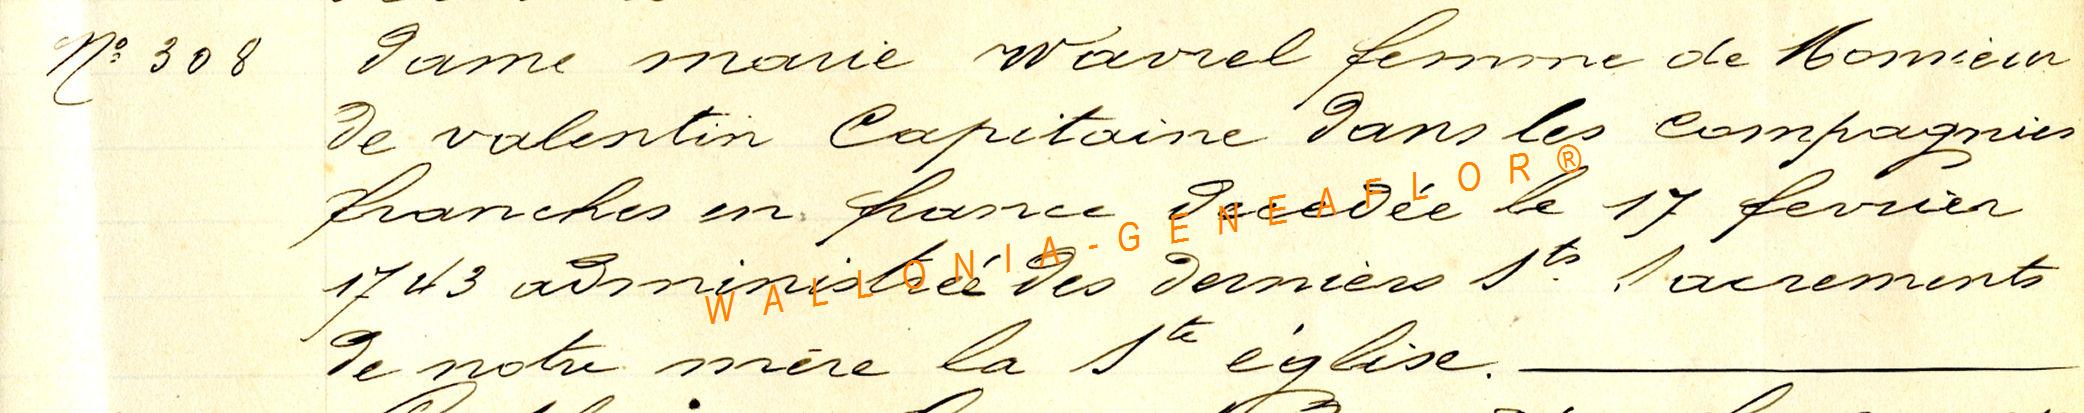 N° 308 Dame marie Wavrel femme de Monsieur
de valentin Capitaine Dans les compagnies
franches en france decedée le 17 fevrier
1743 administrée des derniers Sts. Sacrements
de notre mère la Ste église.
WALLONIA-GENEAFLOR®